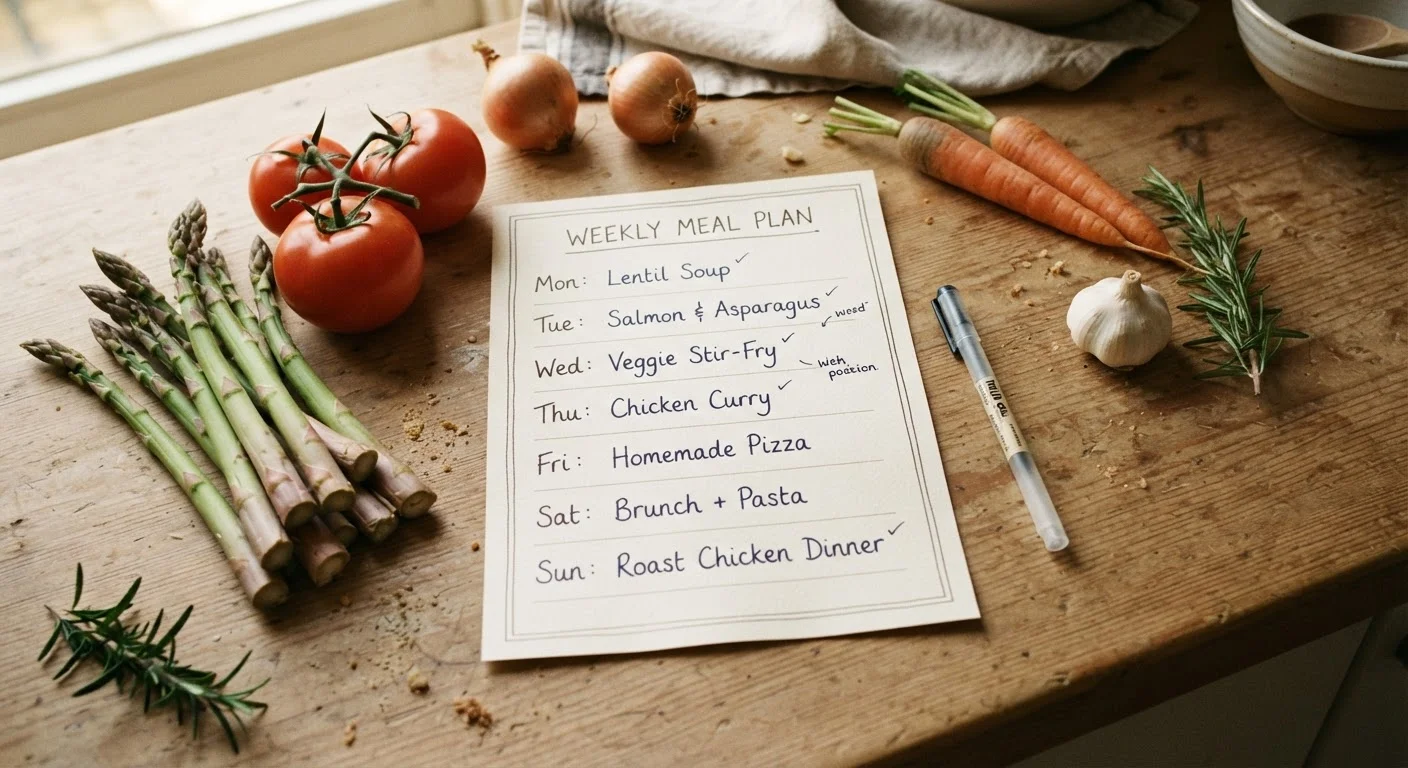 WEEKLY MEAL PLAN
Mon: Lentil Soup ✓
Tue: Salmon & Asparagus ✓
Wed: Veggie Stir-Fry ✓
Thu: Chicken Curry ✓
Fri: Homemade Pizza
Sat: Brunch + Pasta
Sun: Roast Chicken Dinner ✓